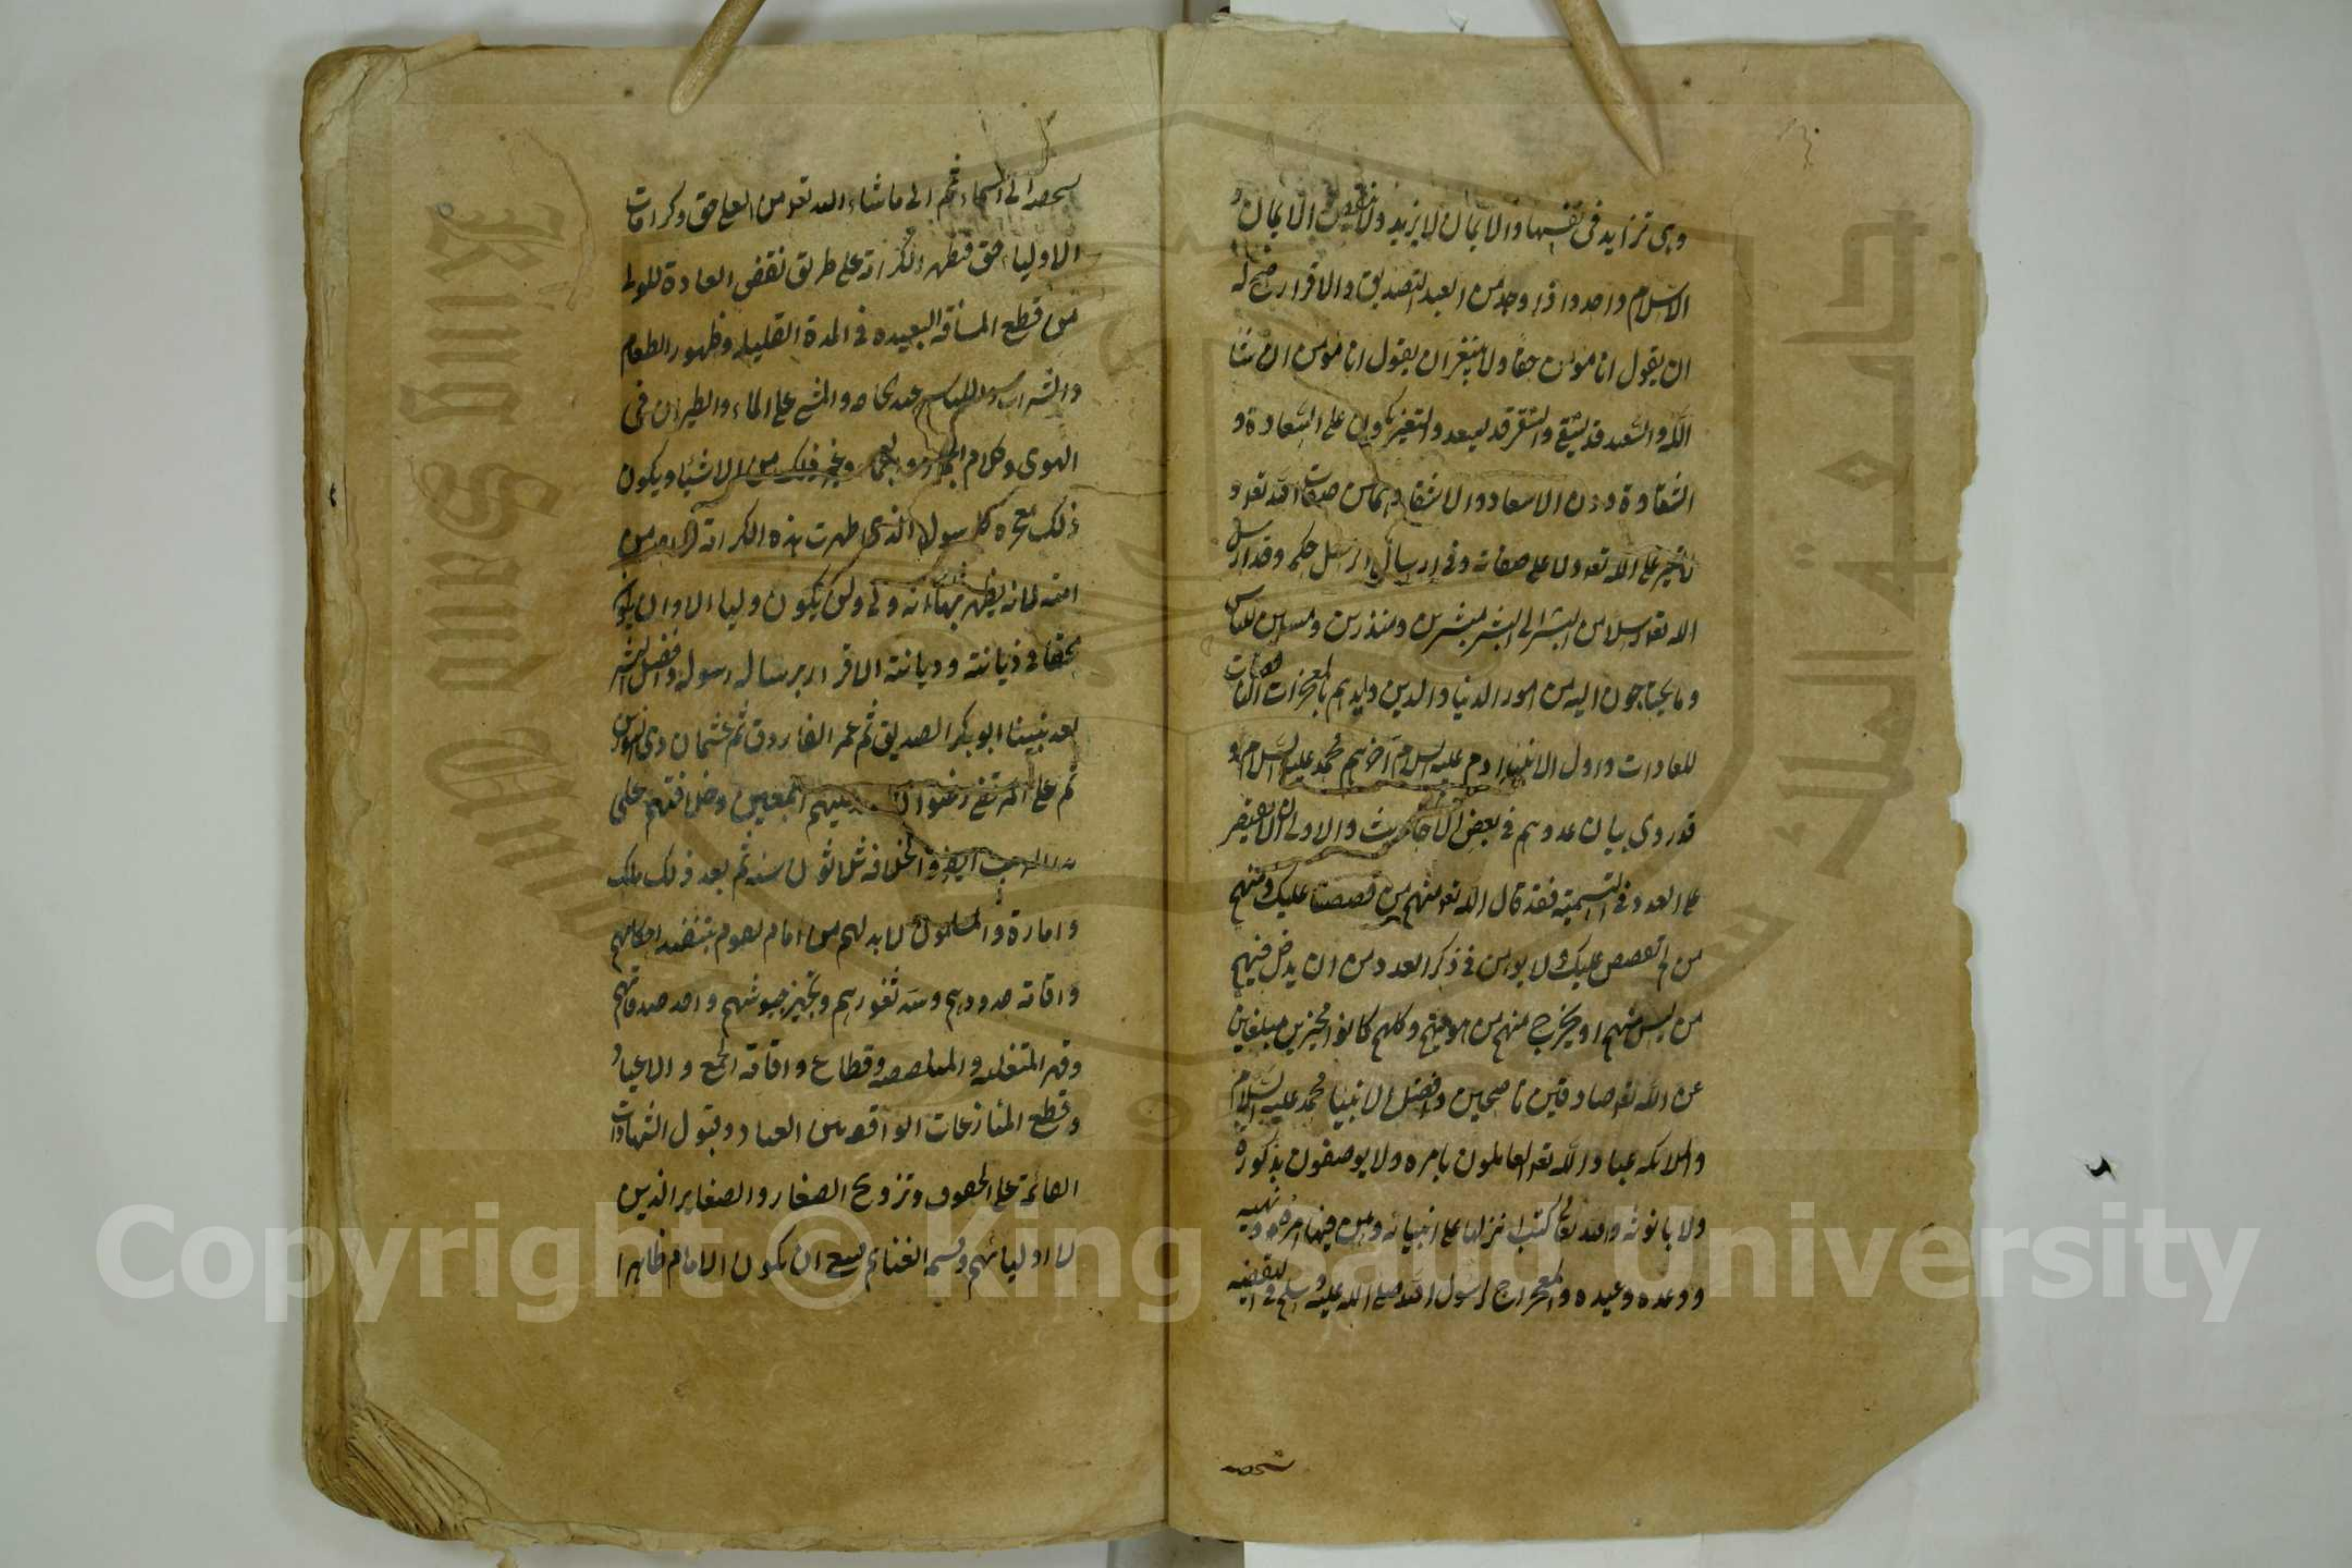 وهى تزايد فى نفسها والايمان لا يزيد ولا ينقص الايمان و
الاسلام واحد واذا وجد من العبد التصديق والاقرار صح له
ان يقول انا مؤمن حقا ولا ينبغى ان يقول انا مؤمن ان شا
الله والسعيد قد يشقى والشقى قد يسعد والتغير يكون على السعادة و
الشقاوة دون الاسعاد والاشقا وهما من صفات الله تعو
تغير على الله تعو ولا على صفاته وفى ارسال الرسل حكمة وقد ارسل
الله تعو رسلا من البشر الى البشر مبشرين ومنذرين ومبينين للناس
وما يحتاجون اليه من امور الدنيا والدين وايدهم بالمعجزات الناقضات
للعادات واول الانبياء ادم عليه السلام آخرهم محمد عليه السلام و
قد روى بيان عددهم فى بعض الاحاديث والاولى ان لا يقتصر
على العدد فى التسمية فقد قال الله تعو منهم من قصصنا عليك ومنهم
من لم نقصص عليك ولا يؤمن فى ذكر العدد من ان يدخل فيهم
من ليس منهم او يخرج منهم من هو فيهم وكلهم كانوا مخبرين مبلغين
عن الله تعو صادقين ناصحين وافضل الانبيا محمد عليه السلام
والملائكة عباد الله تعو العاملون بامره ولا يوصفون بذكورة
ولا بانوثه ولله تعالى كتب انزلها على انبيائه وبين فيها امره ونهيه
ووعده وعيده والمعراج لرسول الله صلى الله عليه وسلم فى اليقظه
بشخصه
بشخصه الى السماء ثم الى ما شاء الله تعو من العلى حق وكرامات
الاولياء حق فتظهر الكرامة على طريق نقض العادة للولى
من قطع المسافة البعيده فى المدة القليله وظهور الطعام
والشراب واللباس عند الحاجه والمشى على الماء والطيران فى
الهوى وكلام الجماد والعجما وغير ذلك من الاشيا ويكون
ذلك معجزه للرسول الذى ظهرت هذه الكرامة لواحد من
امته لانه يظهر بها انه ولى ولن يكون وليا الا وان يكون
محقا فى ديانته وديانته الاقرار برسالة رسوله وافضل البشر
بعد نبينا ابو بكر الصديق ثم عمر الفاروق ثم عثمان ذى النورين
ثم على المرتضى رضوان الله عليهم اجمعين وخلافتهم على
هذا الترتيب ايضا والخلافة ثلاثون سنه ثم بعد ذلك ملك
وامارة والمسلمون لابد لهم من امام يقوم بتنفيذ احكامهم
واقامة حدودهم وسد ثغورهم وتجهيز جيوشهم واخذ صدقاتهم
وقهر المتغلبه والمتلصصه وقطاع واقامة الجمع والاعياد
وقطع المنازعات الواقعه بين العباد وقبول الشهادات
القائمة على الحقوق وتزويج الصغار والصغاير الذين
لا اوليائهم وقسمة الغنايم ينبغى ان يكون الامام ظاهرا
Copyright © King Saud University